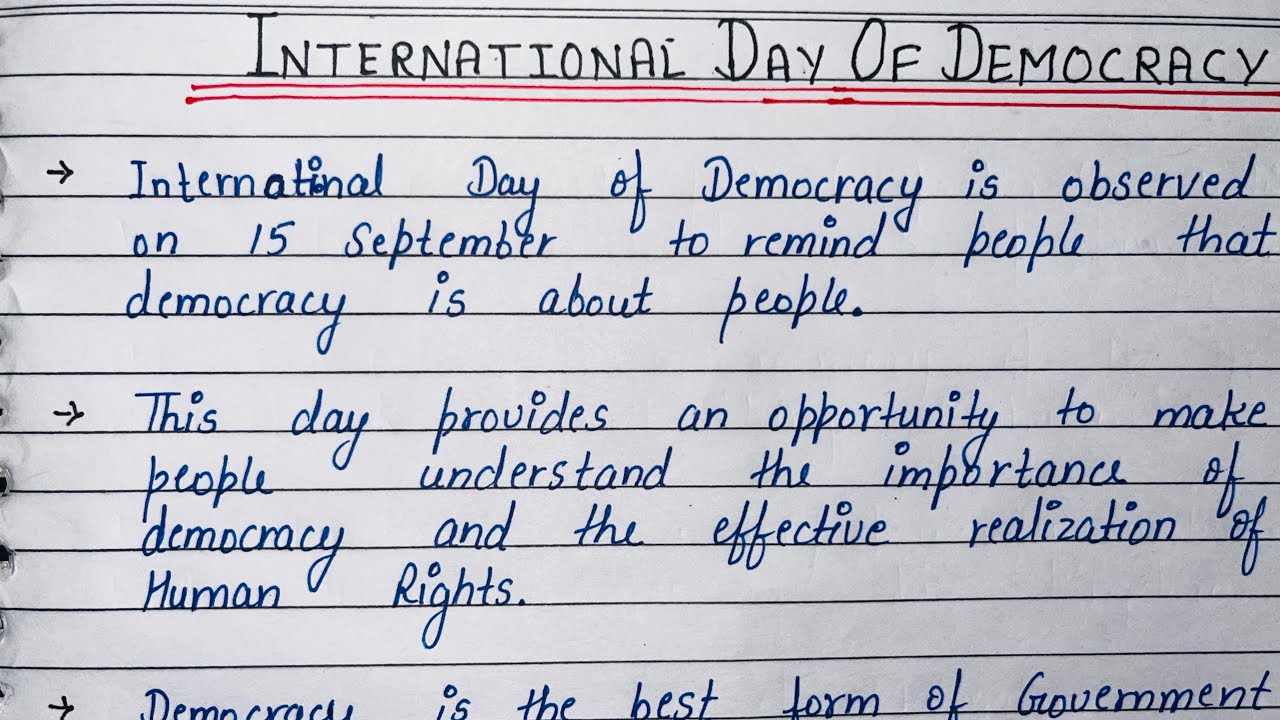 INTERNATIONAL DAY OF DEMOCRACY
→ International Day of Democracy is observed
on 15 September to remind people that
democracy is about people.
→ This day provides an opportunity to make
people understand the importance of
democracy and the effective realization of
Human Rights.
→ Democracy is the best form of Government